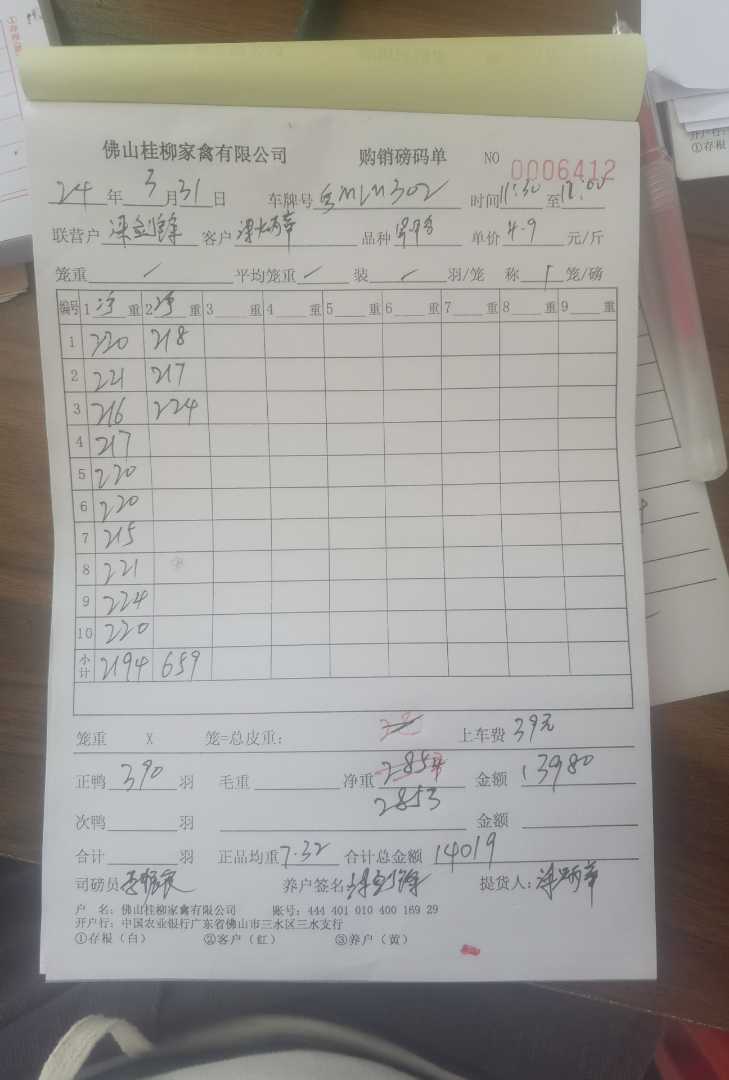 佛山桂柳家禽有限公司 购销磅码单 NO 0006412
24年3月31日 车牌号 时间11:30至12:00
联营户 客户 品种 单价4.9元/斤
笼重/ 平均笼重/ 装/羽/笼 称1笼/磅
编号 1净重 2净重 3重 4重 5重 6重 7重 8重 9重
1 220 218
2 221 217
3 216 224
4 217
5 220
6 220
7 215
8 221
9 224
10 220
小计 2194 659
笼重 X 笼=总皮重: 上车费39元
正鸭390羽 毛重 净重2854 金额13980
2853
次鸭 羽 金额
合计 羽 正品均重7.32 合计总金额14019
司磅员 养户签名 提货人:
户 名: 佛山桂柳家禽有限公司 账号: 444 401 010 400 169 29
开户行: 中国农业银行广东省佛山市三水区三水支行
①存根(白) ②客户(红) ③养户(黄)
①存根